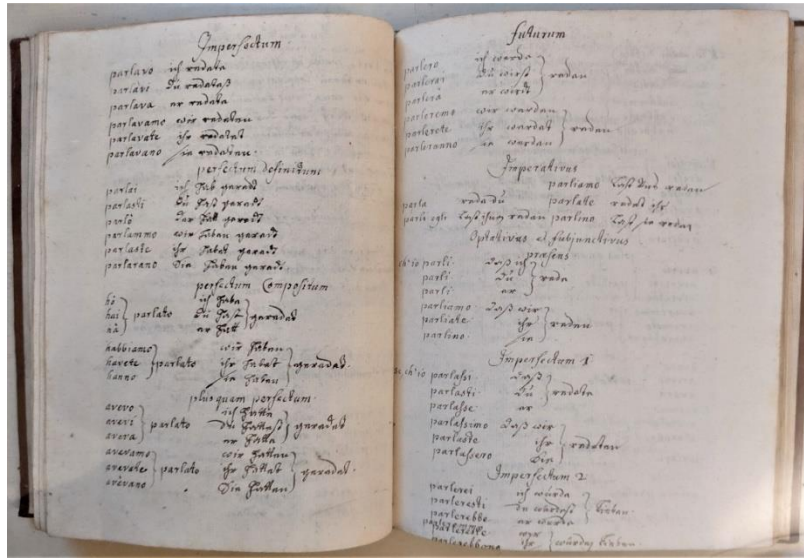 Imperfectum
parlavo ich redete
parlavi du redetest
parlava er redete
parlavamo wir redeten
parlavate ihr redetet
parlavano sie redeten
perfectum definitum
parlai ich hab geredt
parlasti du hast geredt
parlò
parlammo wir haben geredt
parlaste ihr habet geredt
parlarano Sie haben geredt
perfectum Compositum
hò ich habe
hai parlato du hast geredet
hà er hatt
habbiamo wir haben
havete parlato ihr habet geredet
hanno sie haben
plusquam perfectum
avevo ich hatte
avevi parlato du hattest geredet
avera er hatte
avevamo wir hatten
avevete parlato ihr hattet geredet
avevano Sie hatten
futurum
parlero ich werde
parlerai du wirst reden
parlerà er wird
parleremo wir werden
parlerete ihr werdet reden
parleranno sie werden
Imperativus
parliamo Last uns reden
parla rede du parlate redet ihr
parli egli Last ihm reden parlino Last sie reden
Optativus et Subjunctivus
præsens
ch'io parli daß ich
parli du rede
parli er
parliamo daß wir
parliate ihr reden
parlino sie
Imperfectum 1
ch'io parlassi daß
parlasti du redete
parlasse er
parlassimo daß wir
parlaste ihr redeten
parlassero Sie
Imperfectum 2
parlerei ich würde
parleresti du
parlerebbe er
parlereste ihr
parlerebbono würden